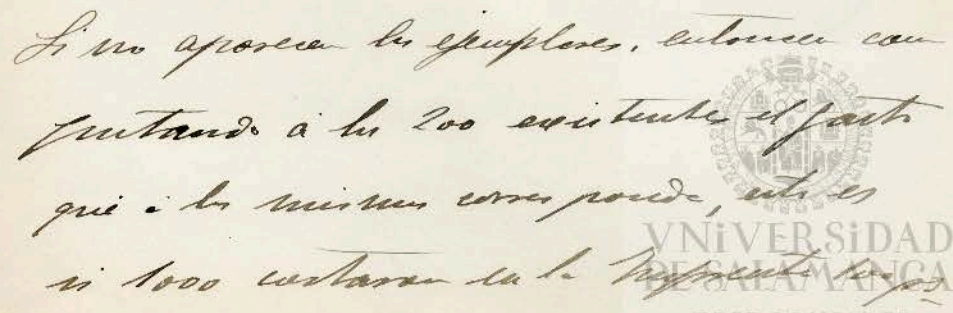 Si no aparecen los ejemplares, entonces com
putando á los 200 existentes el gasto
que á los mismos corresponde, esto es
si 1000 costaron en la Imprenta
VNiVERSiDAD
DE SALAMANCA